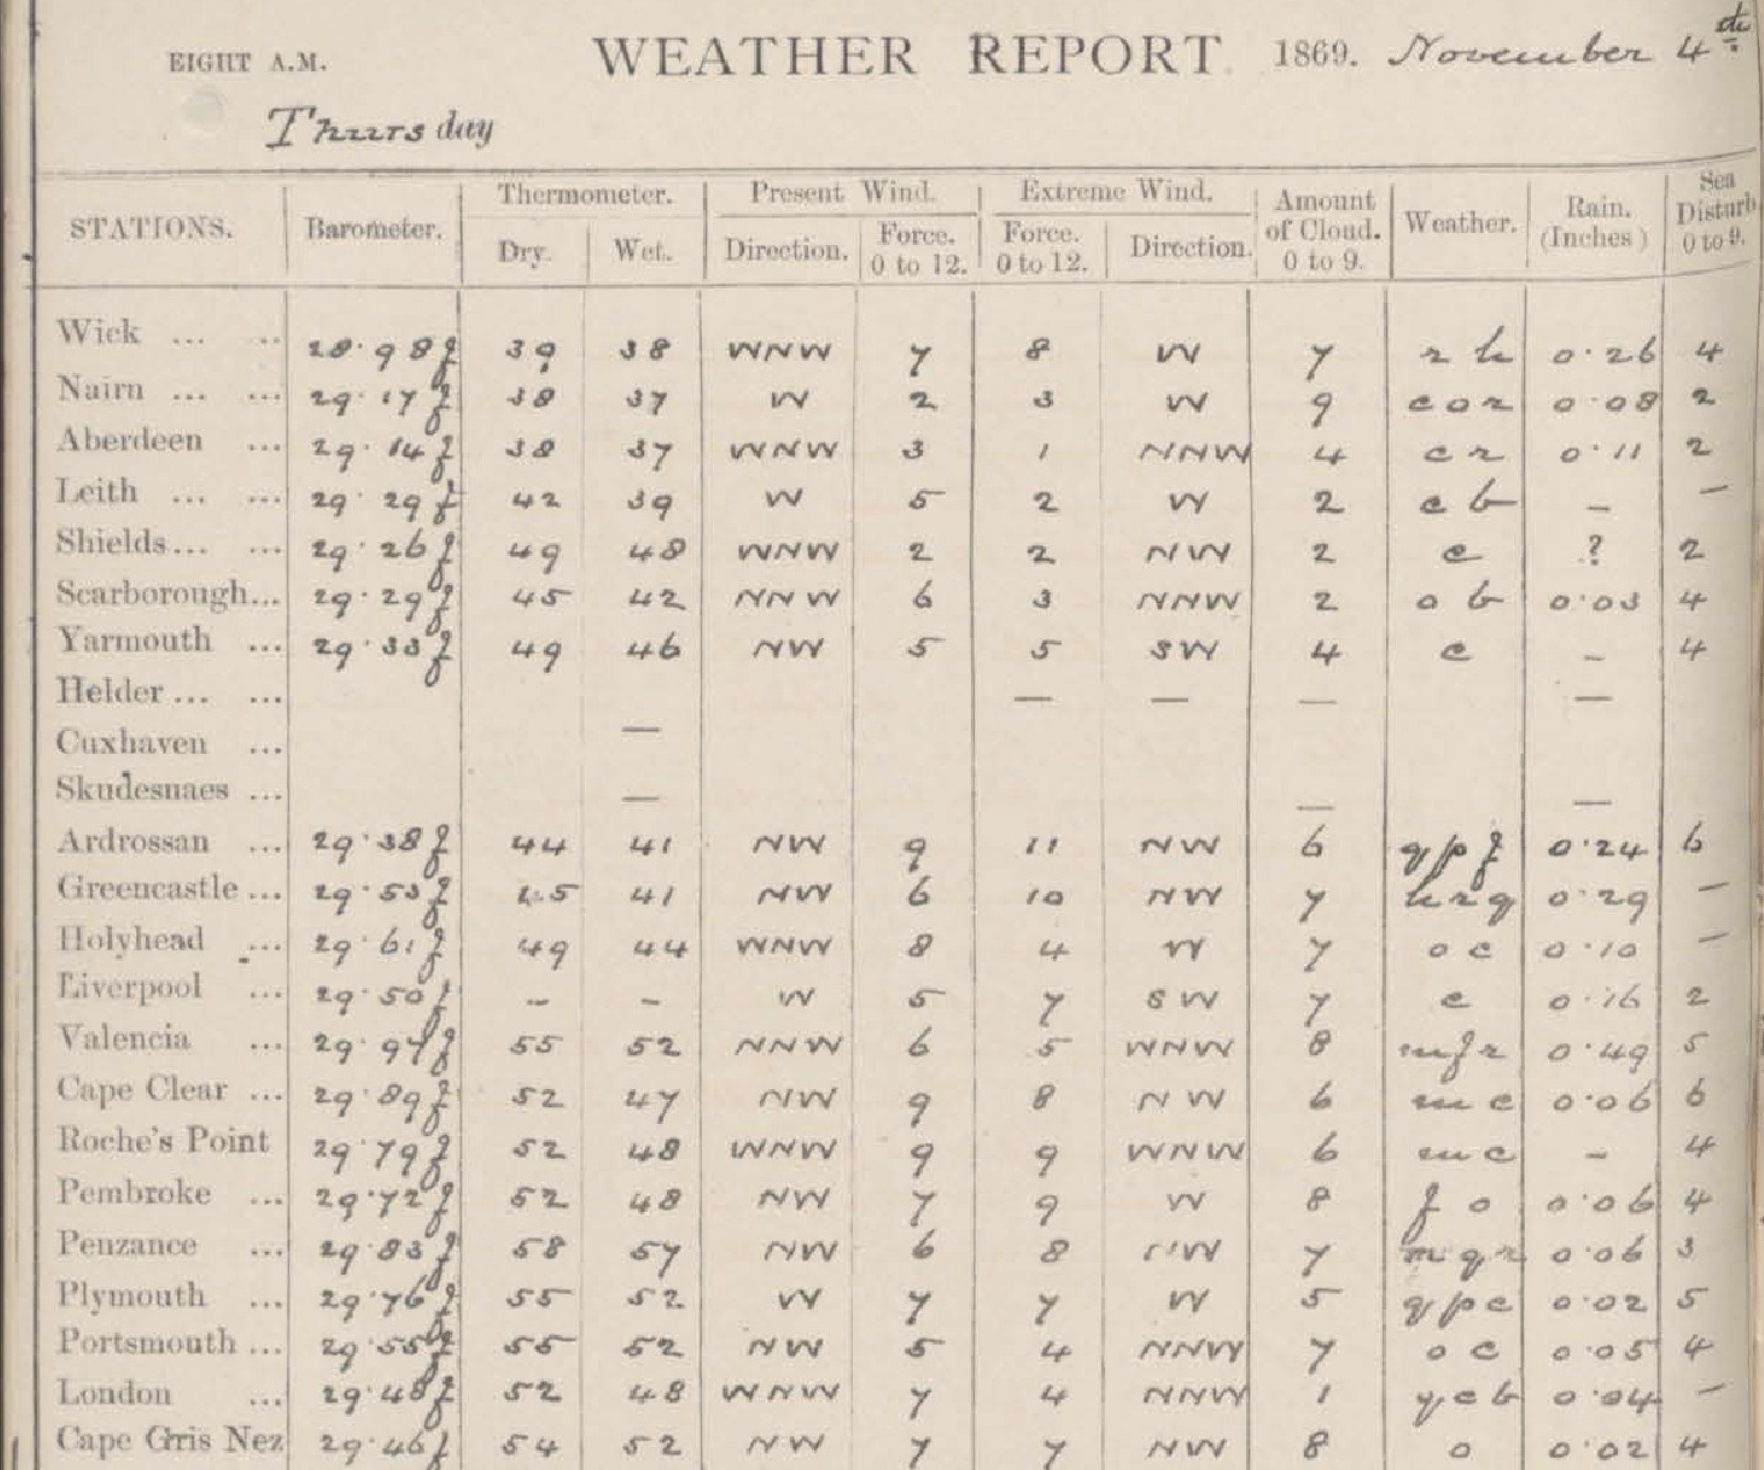 EIGHT A.M. WEATHER REPORT 1869. November 4th
Thursday
STATIONS. Barometer. Thermometer. Present Wind. Extreme Wind. Amount of Cloud. 0 to 9. Weather. Rain. (Inches) Sea Disturb 0 to 9.
Dry. Wet. Direction. Force. 0 to 12. Force. 0 to 12. Direction.
Wick ... .. 28.98f 39 38 WNW 7 8 W 7 r h 0.26 4
Nairn ... ... 29.17f 38 37 W 2 3 W 9 c o r 0.08 2
Aberdeen ... 29.14f 38 37 WNW 3 1 NNW 4 c r 0.11 2
Leith ... ... 29.29f 42 39 W 5 2 W 2 c b – –
Shields... ... 29.26f 49 48 WNW 2 2 NW 2 c ? 2
Scarborough... 29.29f 45 42 NNW 6 3 NNW 2 o b 0.03 4
Yarmouth ... 29.33f 49 46 NW 5 5 SW 4 c – 4
Helder ... ... — — — —
Cuxhaven ... —
Skudesnaes ... — — —
Ardrossan ... 29.38f 44 41 NW 9 11 NW 6 q p f 0.24 6
Greencastle ... 29.53f 45 41 NW 6 10 NW 7 h r q 0.29 –
Holyhead ... 29.61f 49 44 WNW 8 4 W 7 o c 0.10 –
Liverpool ... 29.50f – – W 5 7 SW 7 c 0.16 2
Valencia ... 29.97f 55 52 NNW 6 5 WNW 8 m f r 0.49 5
Cape Clear ... 29.89f 52 47 NW 9 8 NW 6 m c 0.06 6
Roche's Point 29.79f 52 48 WNW 9 9 WNW 6 m c – 4
Pembroke ... 29.72f 52 48 NW 7 9 W 8 f o 0.06 4
Penzance ... 29.83f 58 57 NW 6 8 NW 7 m q r 0.06 3
Plymouth ... 29.76f 55 52 W 7 7 W 5 q p c 0.02 5
Portsmouth ... 29.55f 55 52 NW 5 4 NNW 7 o c 0.05 4
London ... 29.48f 52 48 WNW 7 4 NNW 1 q c b 0.04 –
Cape Gris Nez 29.46f 54 52 NW 7 7 NW 8 o 0.02 4